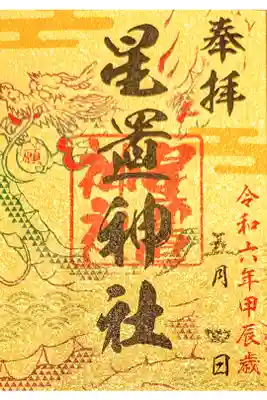 奉拝
星置神社
令和六年甲辰歳
月 日
願